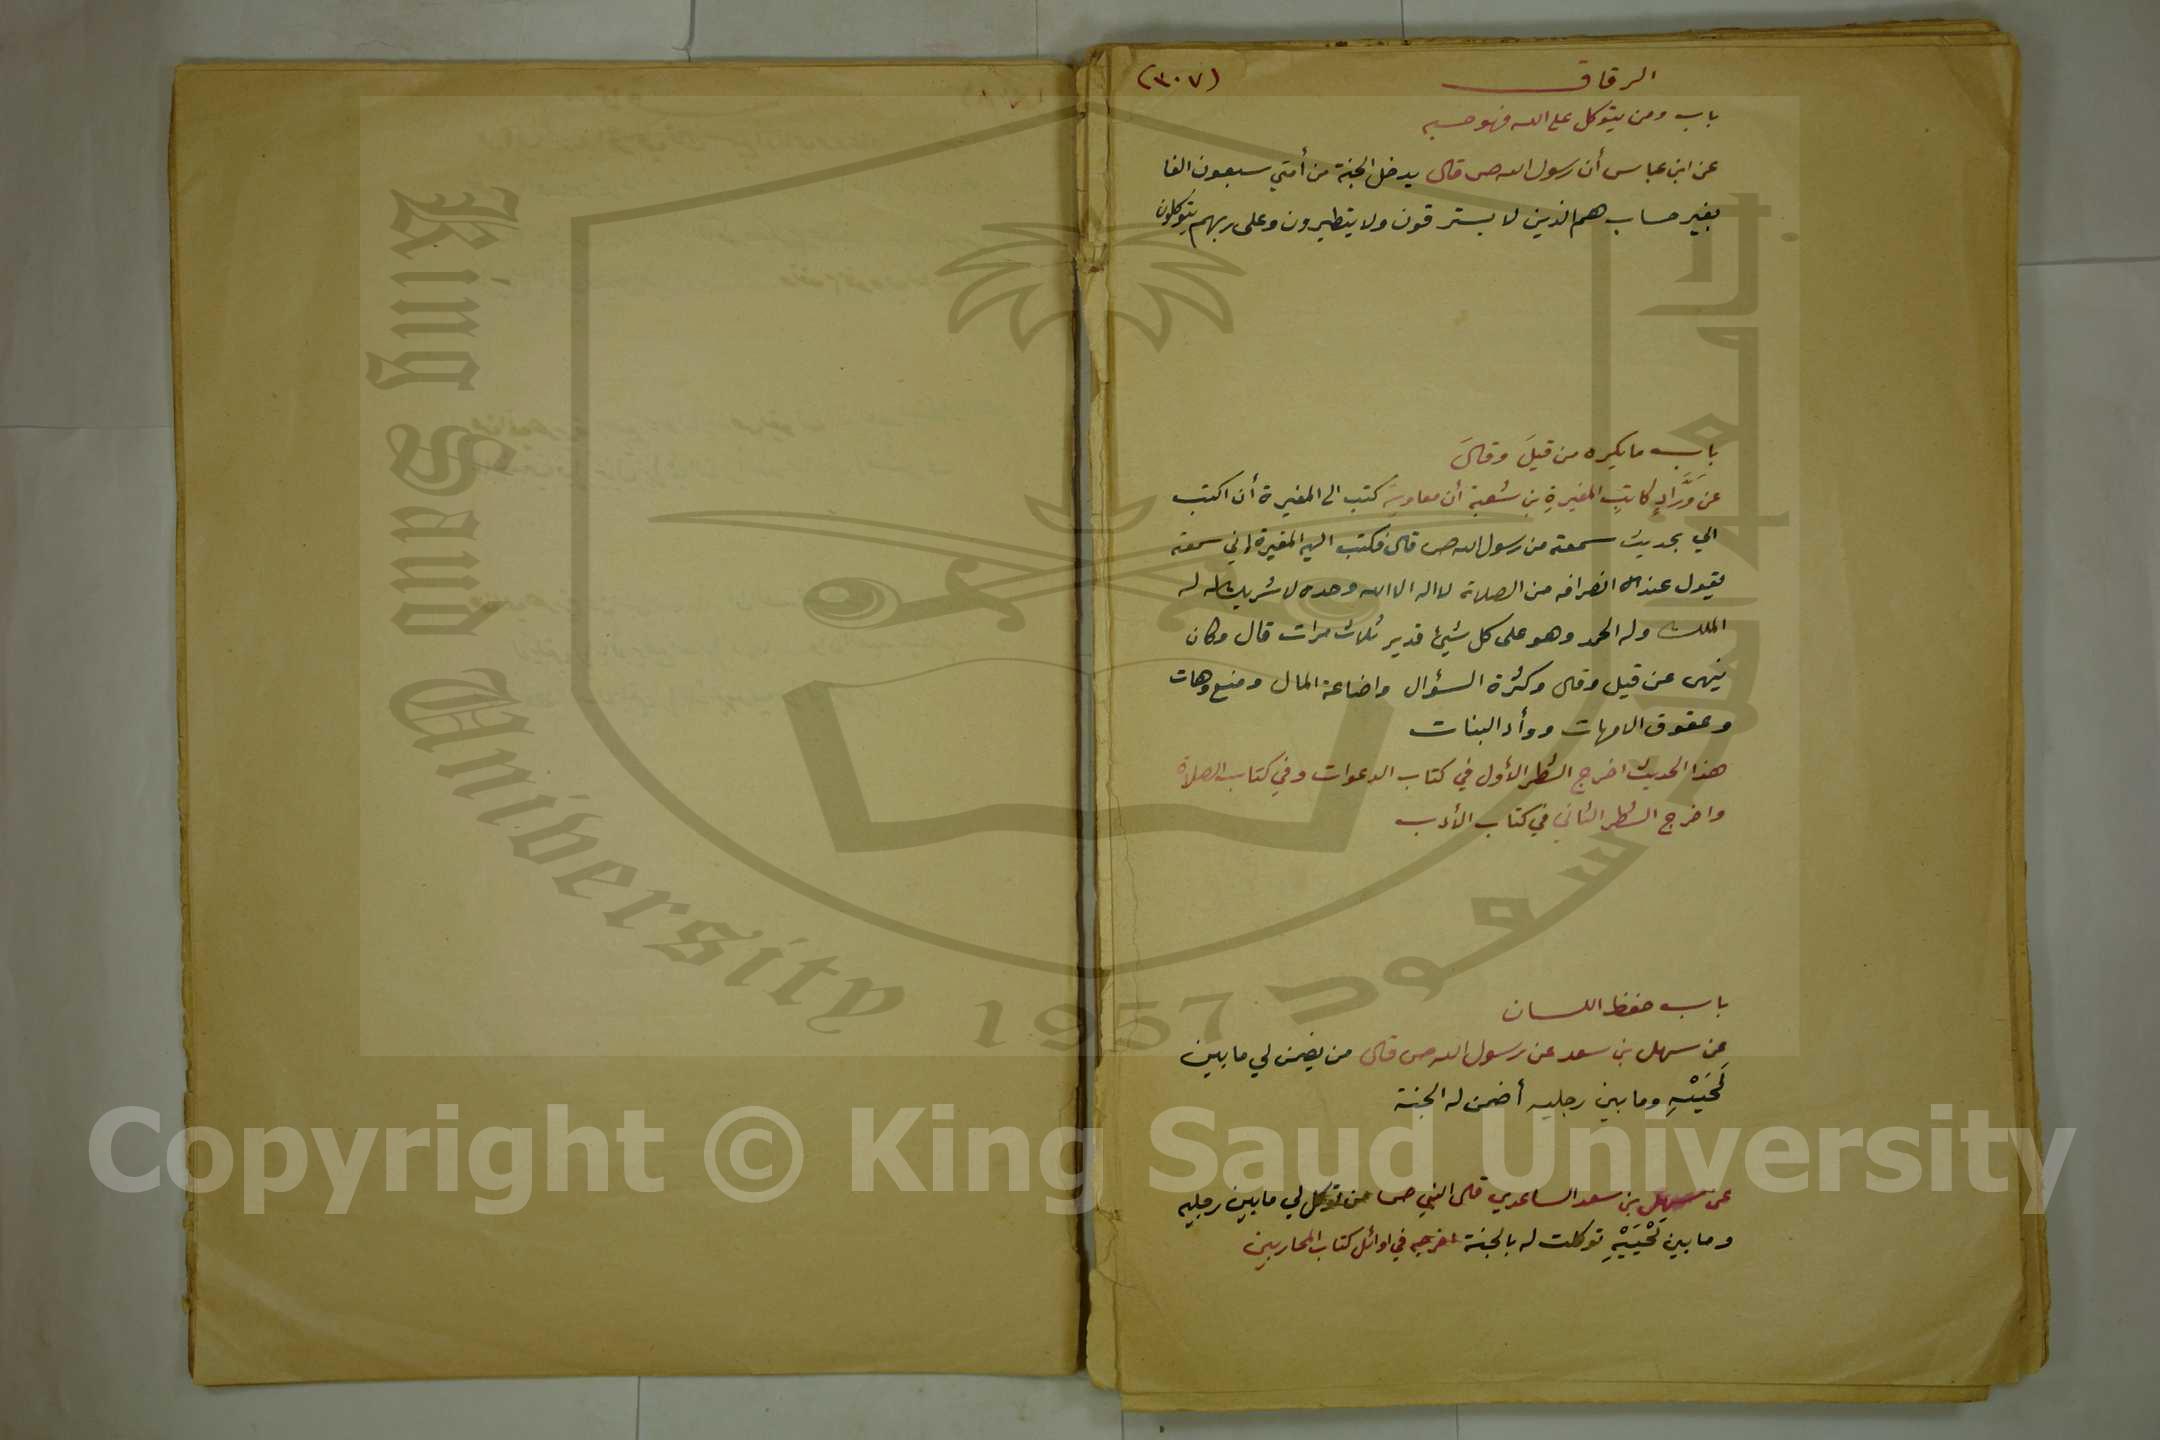 الرقاق (٣٠٧)
باب ومن يتوكل على الله فهو حسبه
عن ابن عباس أن رسول الله ص قال يدخل الجنة من أمتي سبعون الفا
بغير حساب هم الذين لا يسترقون ولا يتطيرون وعلى ربهم يتوكلون
باب ما يكره من قيلَ وقالَ
عن وَرَّادٍ كاتبِ المغيرةِ بنِ شعبة أن معاوية كتب الى المغيرة أن اكتب
الي بحديث سمعته من رسول الله ص قال فكتب اليه المغيرة إني سمعته
يقول عند انصرافه من الصلاة لا اله الا الله وحده لا شريك له له
الملك وله الحمد وهو على كل شيئ قدير ثلاث مرات قال وكان
ينهى عن قيل وقال وكثرة السؤال واضاعة المال ومنع وهات
وعقوق الامهات ووأد البنات
هذا الحديث اخرج الشطر الأول في كتاب الدعوات وفي كتاب الصلاة
واخرج الشطر الثاني في كتاب الأدب
باب حفظ اللسان
عن سهل بن سعد عن رسول الله ص قال من يضمن لي ما بين
لَحْيَيْهِ وما بين رجليه أضمن له الجنة
عن سهل بن سعد الساعدي قال النبي ص من توكل لي ما بين رجليه
وما بين لَحْيَيْهِ توكلت له بالجنة اخرجه في اوائل كتاب المحاربين
King Saud University
1957
سعود
Copyright © King Saud University